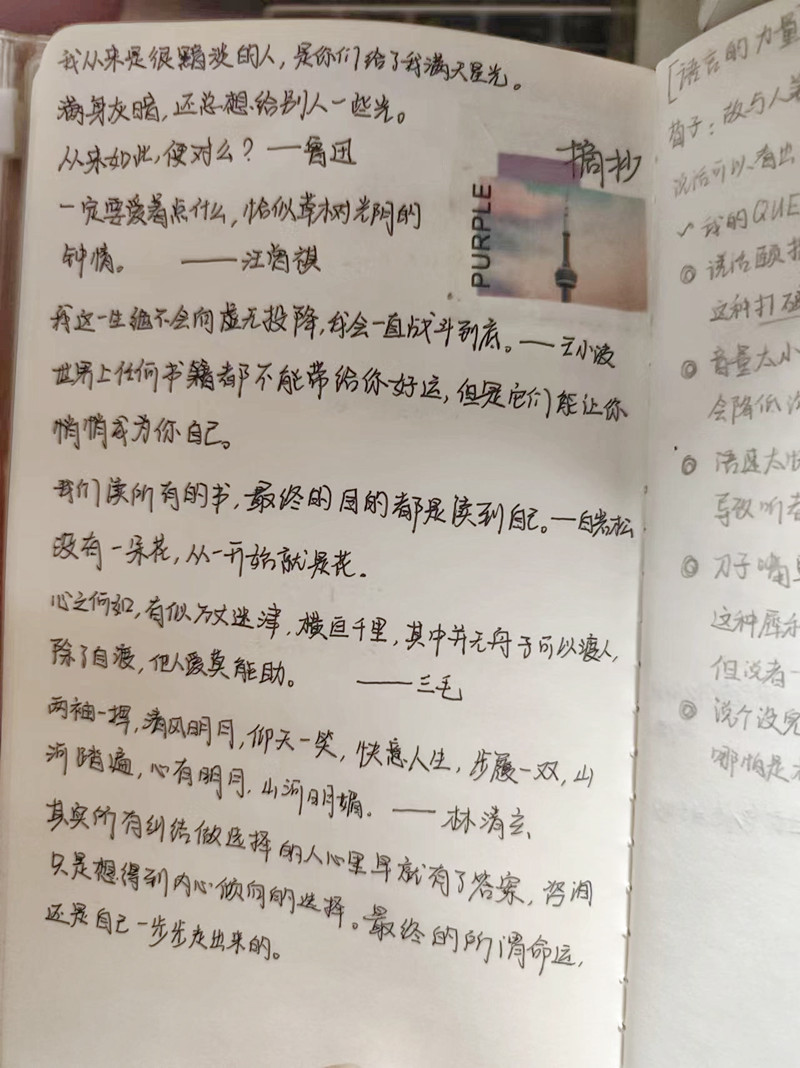 我从来是很黯淡的人，是你们给了我满天星光。
满身灰暗，还总想给别人一些光。
从来如此，便对么？——鲁迅
摘抄
PURPLE
一定要爱着点什么，恰似草木对光阴的
钟情。 ——汪曾祺
我这一生绝不会向虚无投降，我会一直战斗到底。——王小波
世界上任何书籍都不能带给你好运，但是它们能让你
悄悄成为你自己。
我们读所有的书，最终的目的都是读到自己。——白岩松
没有一朵花，从一开始就是花。
心之何如，有似万丈迷津，横亘千里，其中并无舟子可以渡人，
除了自渡，他人爱莫能助。 ——三毛
两袖一挥，清风明月，仰天一笑，快意人生，步履一双，山
河踏遍，心有明月，山河明媚。——林清玄
其实所有纠结做选择的人心里早就有了答案，咨询
只是想得到内心倾向的选择。最终的所谓命运，
还是自己一步步走出来的。
[语言的力量
荀子：故与人善
说话可以看出
✓我的QUE
◎ 说话颐指
这种打
◎ 音量太小
会降低
◎ 语速太快
导致听者
◎ 刀子嘴
这种
但说者一
◎ 说个没完
哪怕是